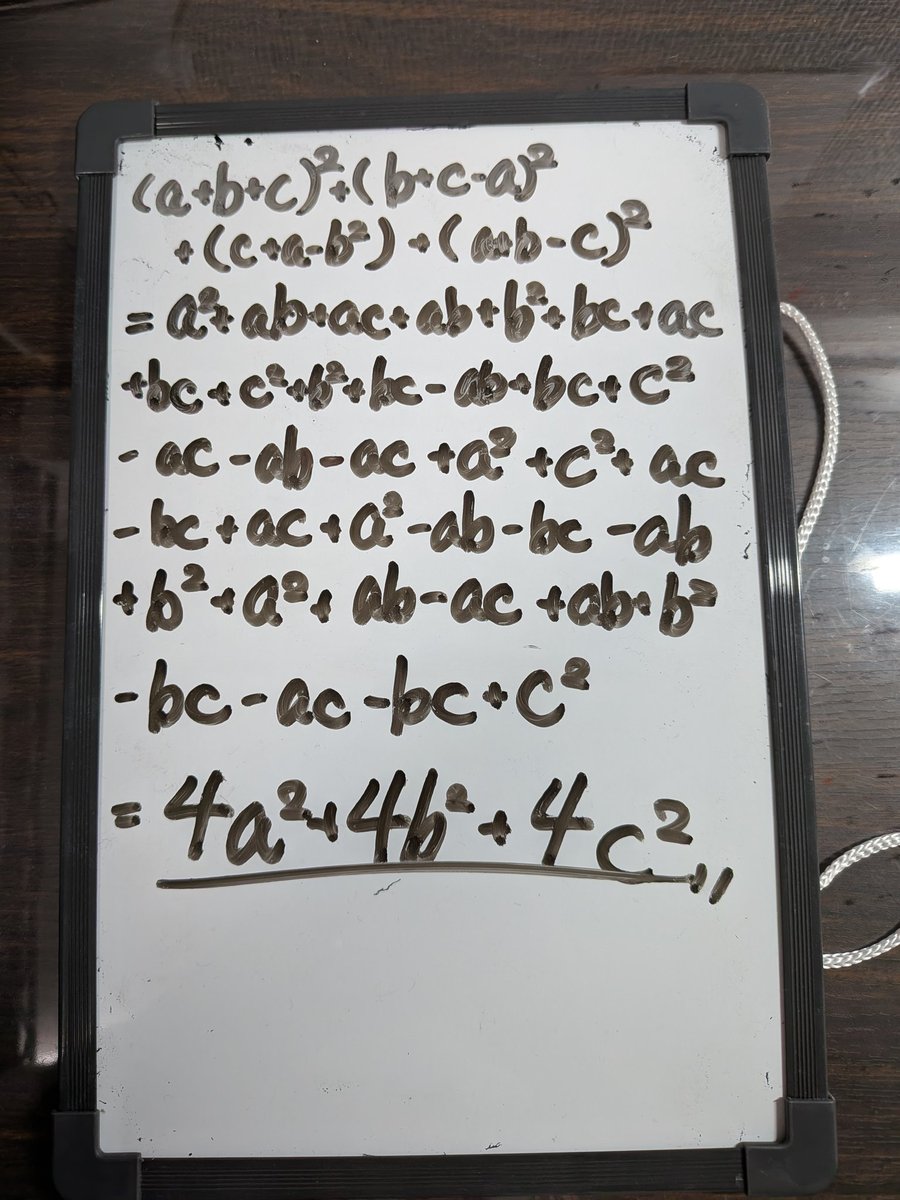 (a+b+c)²+(b+c-a)²
+(c+a-b²)+(a+b-c)²
=a²+ab+ac+ab+b²+bc+ac
+bc+c²+b²+bc-ab+bc+c²
-ac-ab-ac+a²+c²+ac
-bc+ac+a²-ab-bc-ab
+b²+a²+ab-ac+ab+b²
-bc-ac-bc+c²
=4a²+4b²+4c²〃